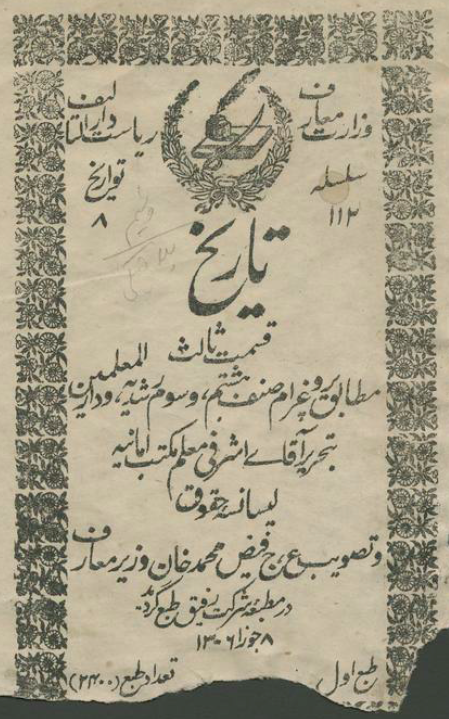 وزارت معارف
ریاست دارالتالیف
سلسله
۱۱۲
تواریخ
۸
تاریخ
قسمت ثالث
مطابق پروغرام صنف هشتم، وسوم رشدیه، ودارالمعلمین
بتحریر آقای اشرفی معلم مکتب امانیه
لیسانسه حقوق
وتصویب ع،ج فیض محمد خان وزیر معارف
در مطبعه شرکت رفیق طبع گردید
۸ جوزا ۱۳۰۶
طبع اول
تعداد طبع (۲۴۰۰)